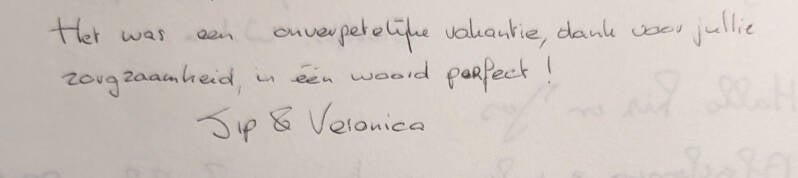 Het was een onvergetelijke vakantie, dank voor jullie
zorgzaamheid, in één woord perfect!
Jip & Veronica